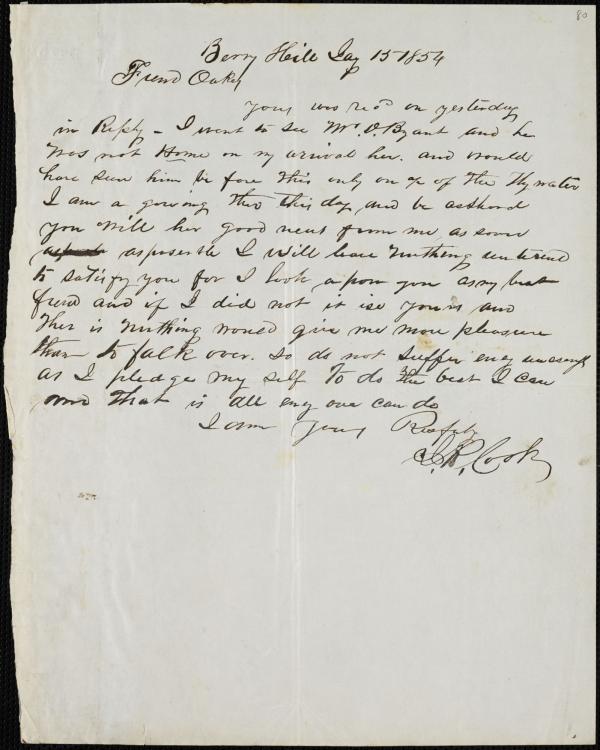 80
Berry Hill Jay 15 1854
Frend Oakes
yours was recd on yesterday
in Reply - I went to see Mr. O. Byant and he
was not Home on my arival her. and would
have seen him be fore this only on of the Hy water
I am a gowing thir this day, and be
you will her good news from me, as soon
asposerble I will leave Nuthing unterned
to satisfy you for I look apon you as my best
frend and if I did not it ise yours and
Ther is Nuthing would give me more pleasure
than to talk over. So do not suffer eney
as I pledge my self to do the best I can
and that is all eny one can do
I am yours Respfly
J. R. Cook